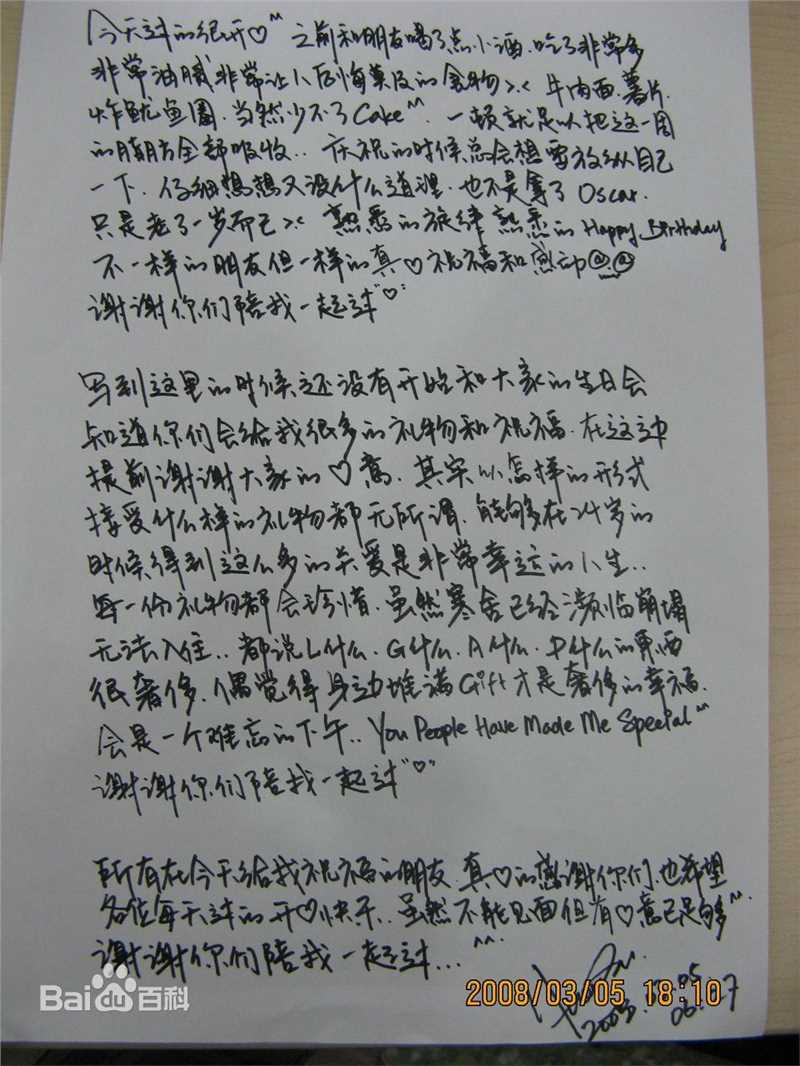 今天过的很开♡^^ 之前和朋友喝了点小酒.吃了非常多
非常油腻非常让人后悔莫及的食物>.< 牛肉面.薯片.
炸鱿鱼圈.当然少不了Cake^^. 一顿就足以把这一周
的脂肪全部吸收.. 庆祝的时候总会想要放纵自己
一下.仔细想想又没什么道理.也不是拿了Oscar.
只是老了一岁而已>.< 熟悉的旋律熟悉的Happy Birthday
不一样的朋友但一样的真♡祝福和感动@.@
谢谢你们陪我一起过"♡"
写到这里的时候还没有开始和大家的生日会
知道你们会给我很多的礼物和祝福.在这边
提前谢谢大家的♡意.其实以怎样的形式
接受什么样的礼物都无所谓.能够在24岁的
时候得到这么多的关爱是非常幸运的人生..
每一份礼物都会珍惜.虽然寒舍已经濒临崩塌
无法入住..都说L什么.G什么.A什么.P什么的东西
很奢侈.偶觉得身边堆满Gift才是奢侈的幸福.
会是一个难忘的下午..You People Have Made Me Special^^
谢谢你们陪我一起过"♡"
所有在今天给我祝福的朋友.真♡的感谢你们.也希望
各位每天过的开♡快乐..虽然不能见面但有♡意已足够^^.
谢谢你们陪我一起过...^^
2008.
05
06:27
2008/03/05 18:10
Bai du 百科